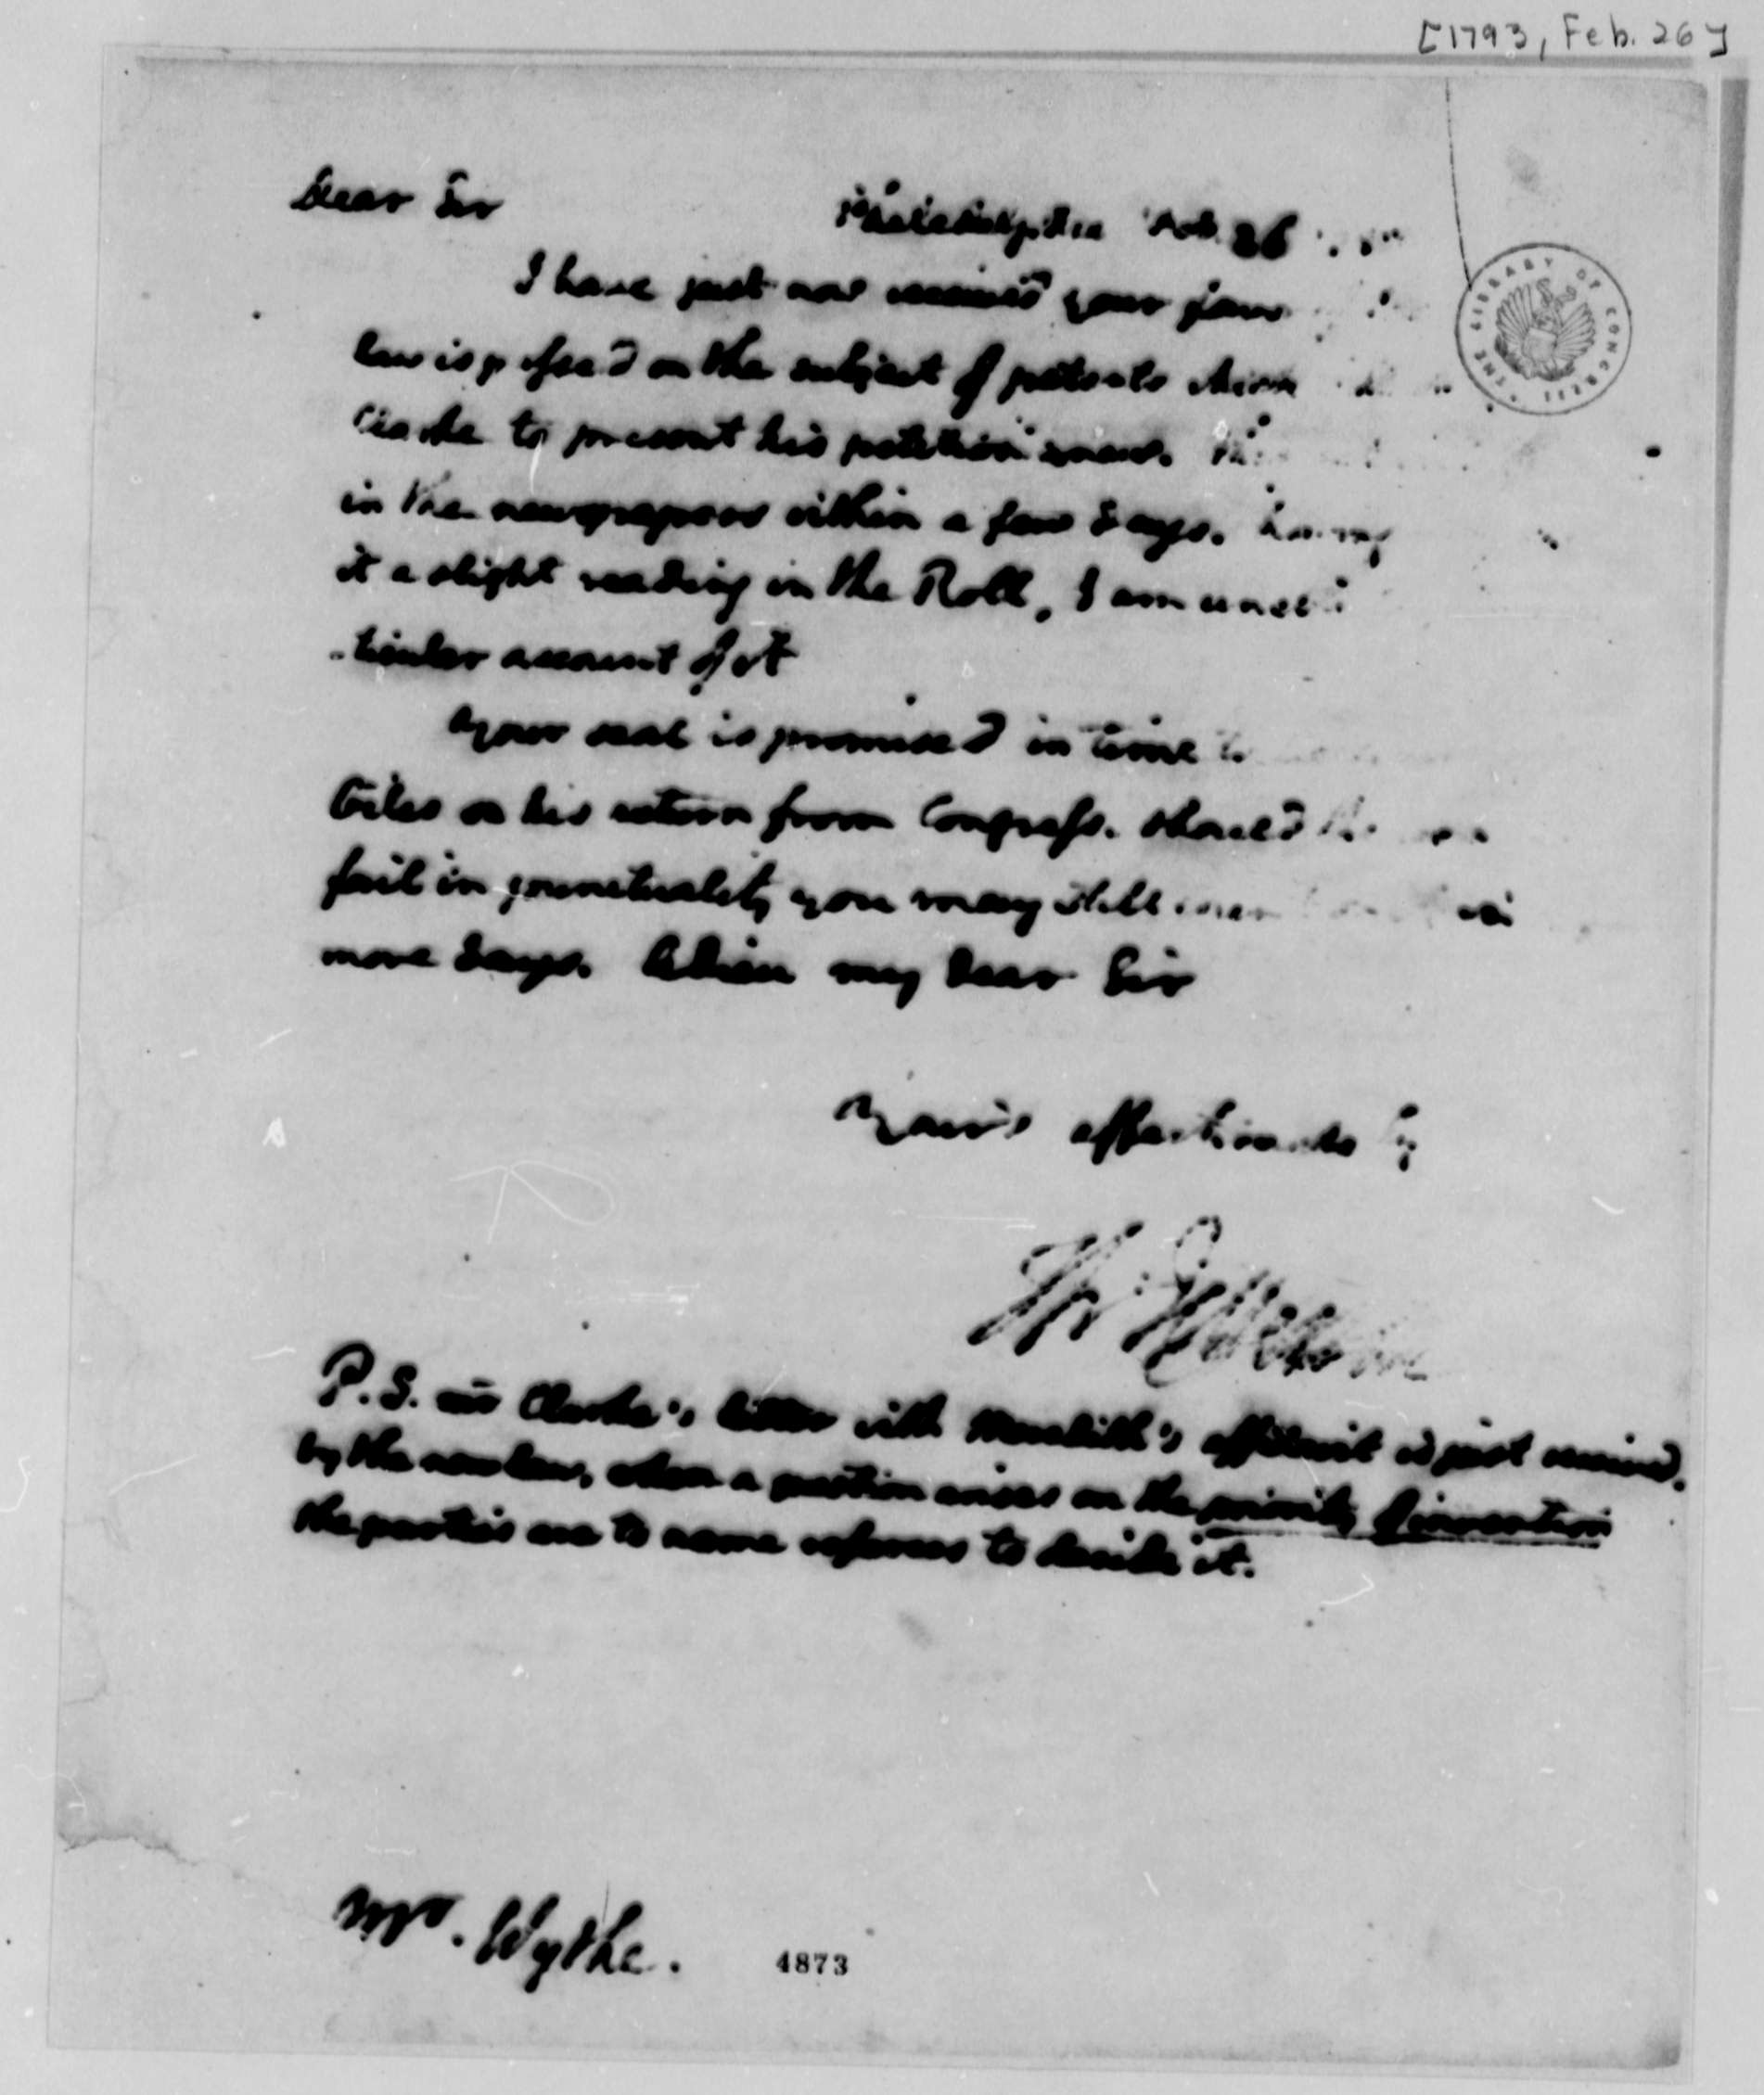 [1793, Feb. 26]
THE LIBRARY OF CONGRESS
Dear Sir Philadelphia Feb. 26
I have just now received your favor
law is passed on the subject of patents which
Clarke to present his petition anew.
in the newspapers within a few days. having
it a slight reading in the Roll, I am
-ticular account of it
Your seal is promised in time
Giles on his return from Congress. should
fail in punctuality you may still
more days. Adieu my dear Sir
Your's affectionately
Th: Jefferson
P.S. mr Clarke's letter with Meredith's affidavit is just received.
by the new law, when a question arises on the priority of invention
the parties are to name referees to decide it.
Mr. Wythe.
4873